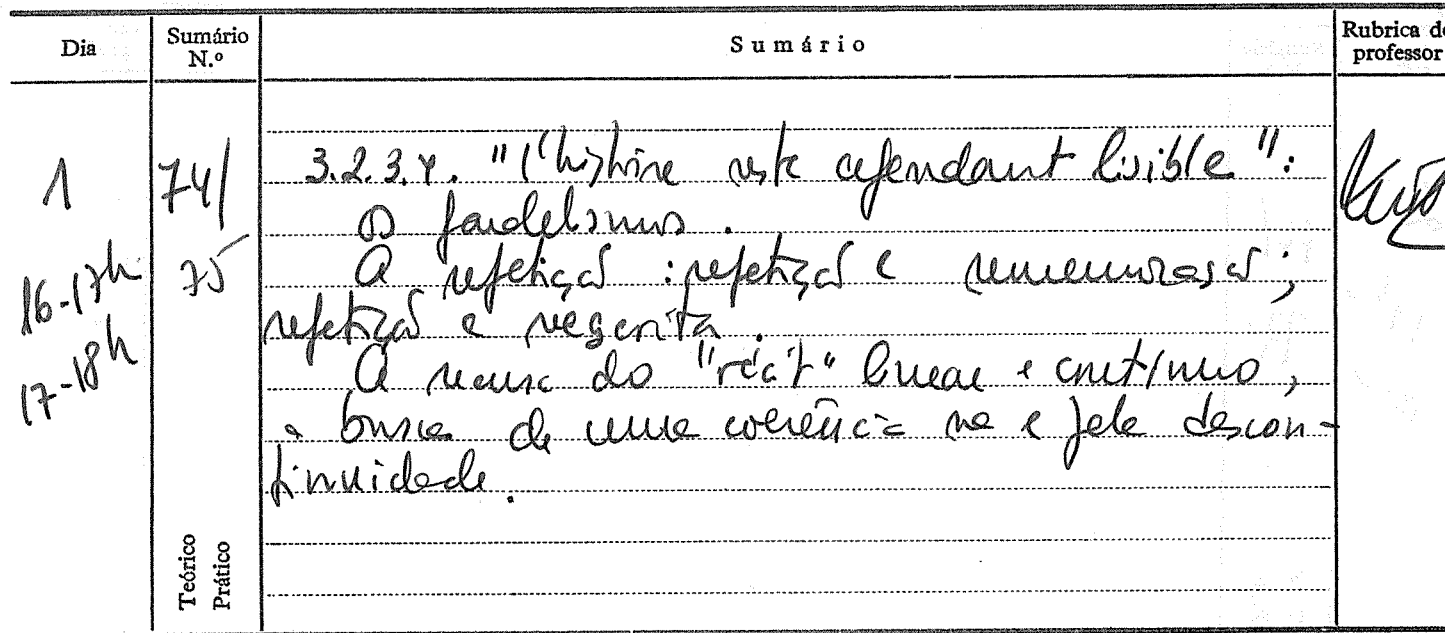 Dia
Sumário N.º
Sumário
Rubrica do professor
1
74/
75
16-17h
17-18h
3.2.3.4. "l'histoire reste cependant lisible":
os paralelismos.
A repetição: repetição e rememoração;
repetição e reescrita.
A recusa do "récit" linear e contínuo,
a busca de uma coerência na e pela descon-
tinuidade.
Teórico
Prático